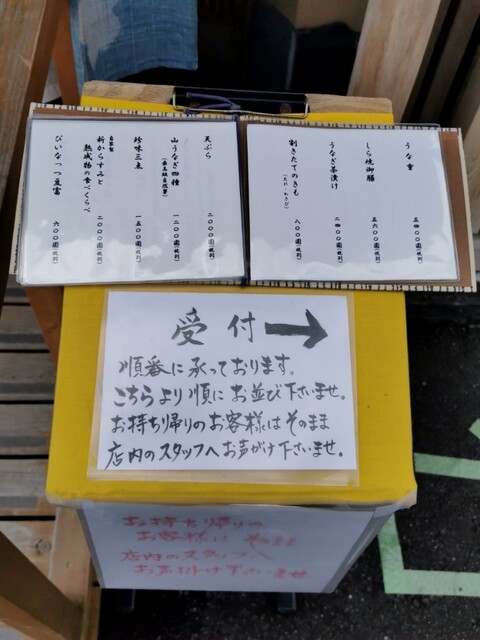 うな重 五四〇〇円(税別)
しら焼御膳 五六〇〇円(税別)
うなぎ茶漬け 二四〇〇円(税別)
割きたてのきも(たれ・わさび) 八〇〇円(税別)
天ぷら 二〇〇〇円(税別)
山うなぎ四種 一二〇〇円(税別)
珍味三点 一五〇〇円(税別)
自家製
新からすみと
熟成物の食べくらべ 二〇〇〇円(税別)
ぴいなっつ豆富 六〇〇円(税別)
受付→
順番に承っております。
こちらより順にお並び下さいませ。
お持ち帰りのお客様はそのまま
店内のスタッフへお声がけ下さいませ。
お持ち帰りの
お客様は そのまま
店内のスタッフへ
お声掛け下さいませ